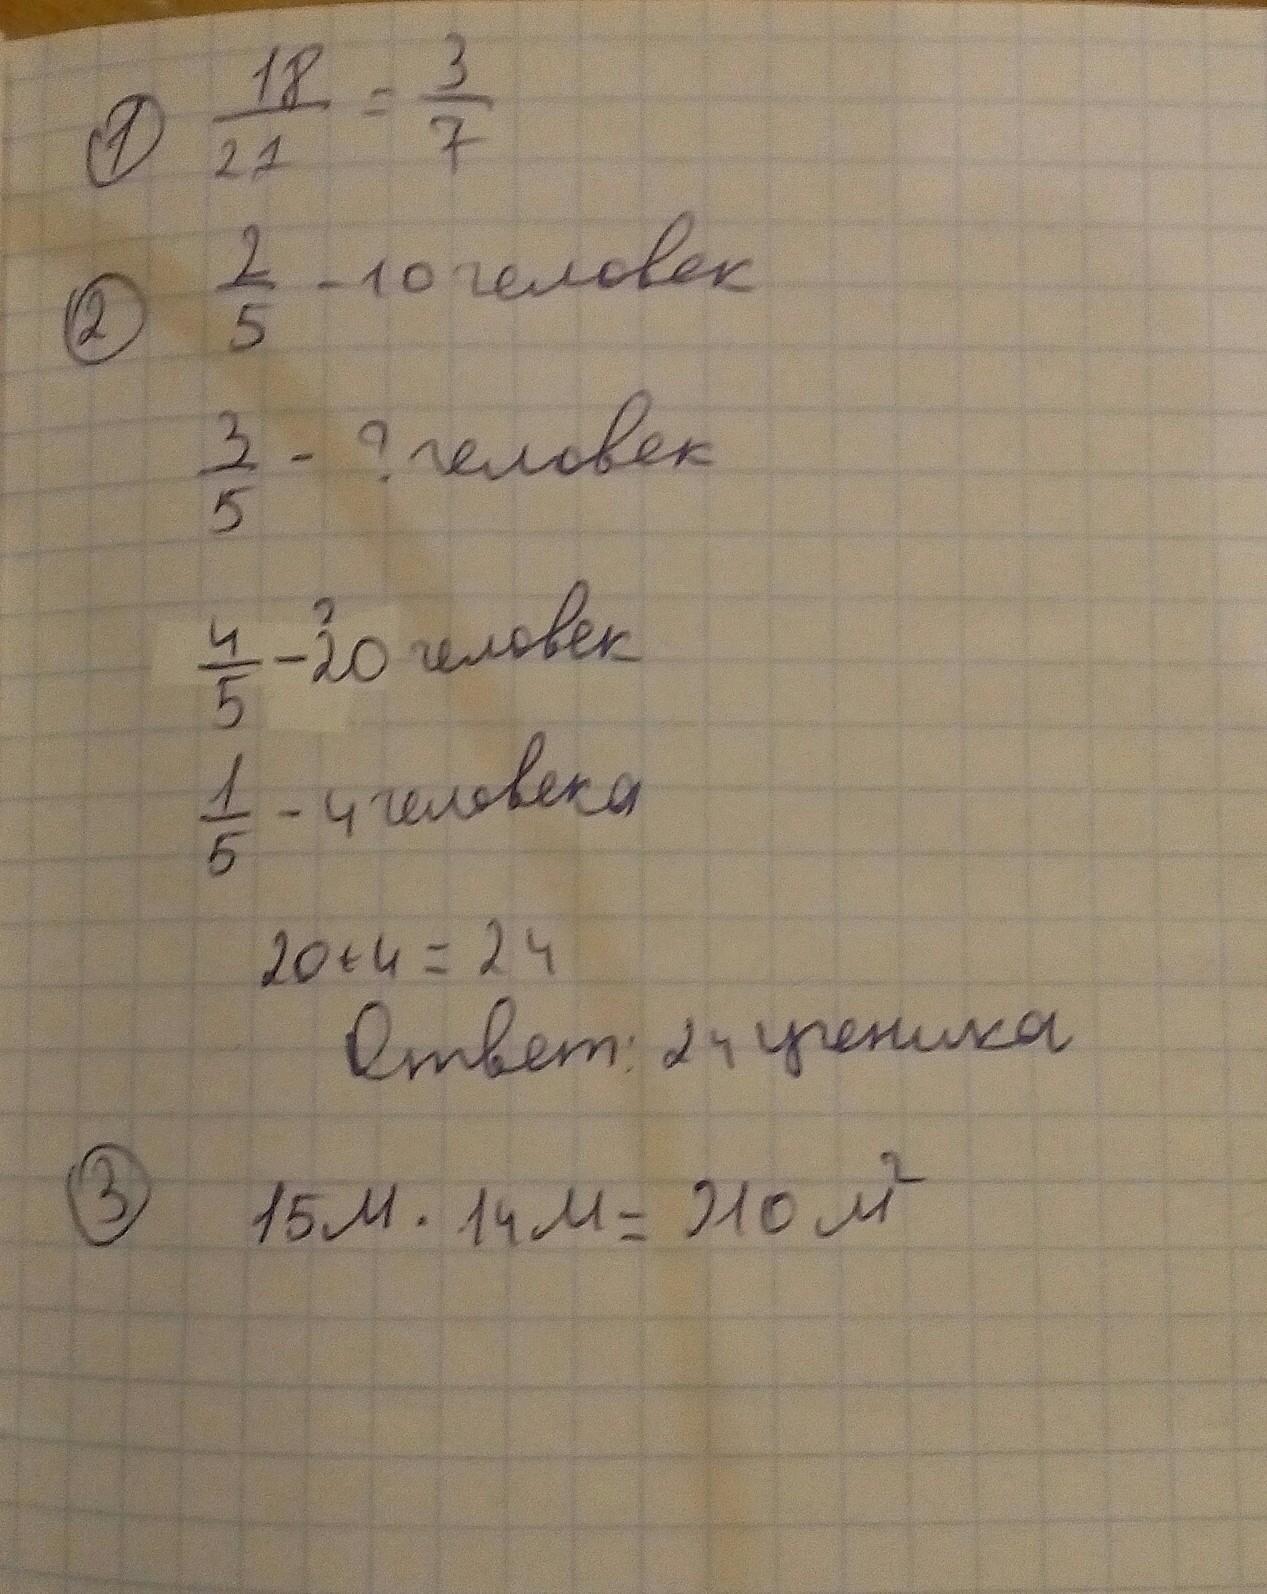 ① 18/21 = 3/7
② 2/5 - 10 человек
3/5 - ? человек
4/5 - 20 ? человек
1/5 - 4 человека
20+4=24
Ответ: 24 ученика
③ 15м · 14м = 210 м²